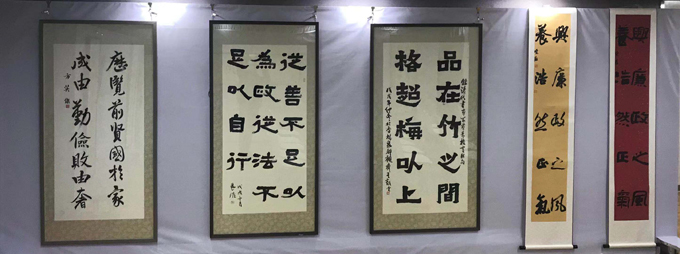 歷覽前賢國於家
成由勤儉敗由奢
從善不足以
為政從法不
足以自行
品在竹之間
格超梅以上
興廉政之風
養浩然正氣
興廉政之風
養浩然正氣